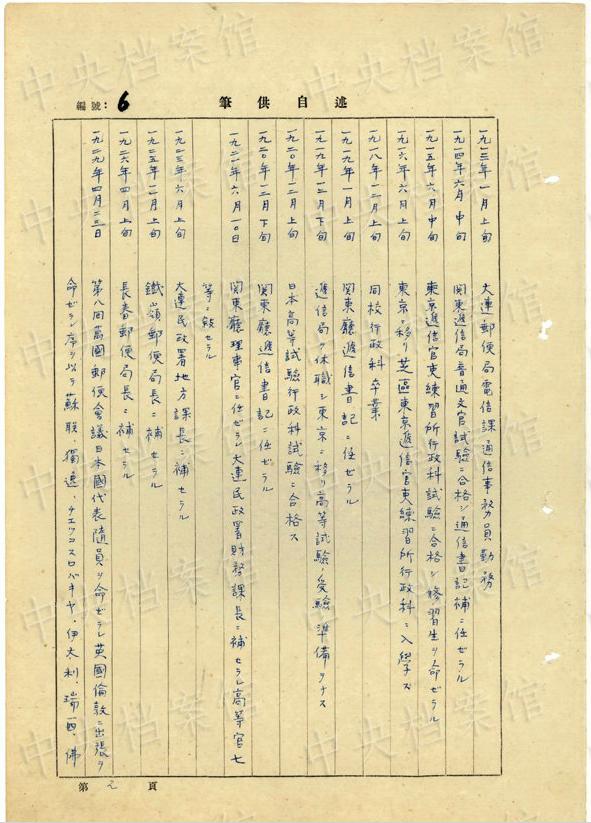 編號: 6
述自供筆
一九一三年一月上旬 大連郵便局電信課通信事務員勤務
一九一四年六月中旬 関東逓信局普通文官試験ニ合格シ通信書記補ニ任ゼラル
一九一五年六月中旬 東京逓信官吏練習所行政科試験ニ合格シ修習生ヲ命ゼラル
一九一六年六月上旬 東京ニ移リ芝區東京逓信官吏練習所行政科ニ入學ス
一九一八年一二月上旬 同校行政科卒業
一九一九年一月上旬 関東廳逓信書記ニ任ゼラル
一九一九年一二月下旬 逓信局ヲ休職シ東京ニ移リ高等試験ノ受験準備ヲナス
一九二〇年一二月上旬 日本高等試験行政科試験ニ合格ス
一九二〇年一二月下旬 関東廳逓信書記ニ任ゼラル
一九二一年六月一〇日 関東廳理事官ニ任ゼラレ大連民政署財務課長ニ補セラレ高等官七
等ニ敍セラル
一九二三年六月上旬 大連民政署地方課長ニ補セラル
一九二五年一二月上旬 鐵嶺郵便局長ニ補セラル
一九二六年四月上旬 長春郵便局長ニ補セラル
一九二九年四月二三日 第八回萬國郵便会議日本國代表随員ヲ命ゼラレ英國倫敦ニ出張ヲ
命ゼラレ序ヲ以テ蘇联、獨逸、チエッコスロバキヤ、伊太利、瑞西、佛
第 頁
中央档案馆